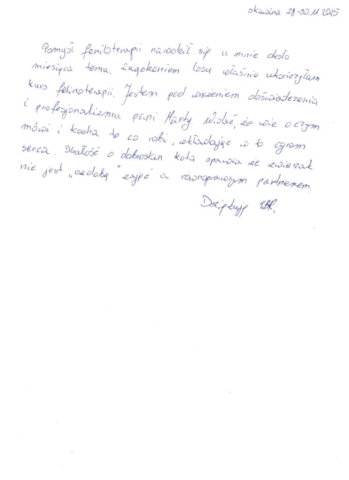 Skawina 29-30.11.2025
Pomysł feniloterapii narodził się u mnie około
miesiąca temu. Zrządzeniem losu właśnie ukończyłam
kurs felinoterapii. Jestem pod wrażeniem doświadczenia
i profesjonalizmu pani Marty. Widać, że wie o czym
mówi i kocha to co robi, wkładając w to ogrom
serca. Dbałość o dobrostan kota sprawia że zwierzak
nie jest „ozdobą” zajęć a równoprawnym partnerem.
Dziękuję